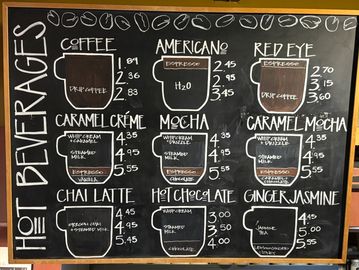 HOT BEVERAGES
COFFEE
1.89
2.36
2.83
DRIP COFFEE
AMERICANO
ESPRESSO
H2O
2.45
2.95
3.45
RED EYE
ESPRESSO
DRIP COFFEE
2.70
3.15
3.60
CARAMEL CRÉME
WHIP CREAM
+ CARAMEL
STEAMED
MILK
ESPRESSO
VANILLA
4.35
4.95
5.55
MOCHA
WHIP CREAM
+ DRIZZLE
STEAMED
MILK
ESPRESSO
CHOCOLATE
4.35
4.95
5.55
CARAMEL MOCHA
WHIP CREAM
+ DRIZZLE
STEAMED
MILK
ESPRESSO
CHOCOLATE
4.35
4.95
5.55
CHAI LATTE
+ STEAMED MILK
4.45
5.00
5.55
HOT CHOCOLATE
WHIP CREAM
STEAMED
MILK
CHOCOLATE
3.00
3.50
4.00
GINGER JASMINE
JASMINE
TEA
4.45
5.00
5.55